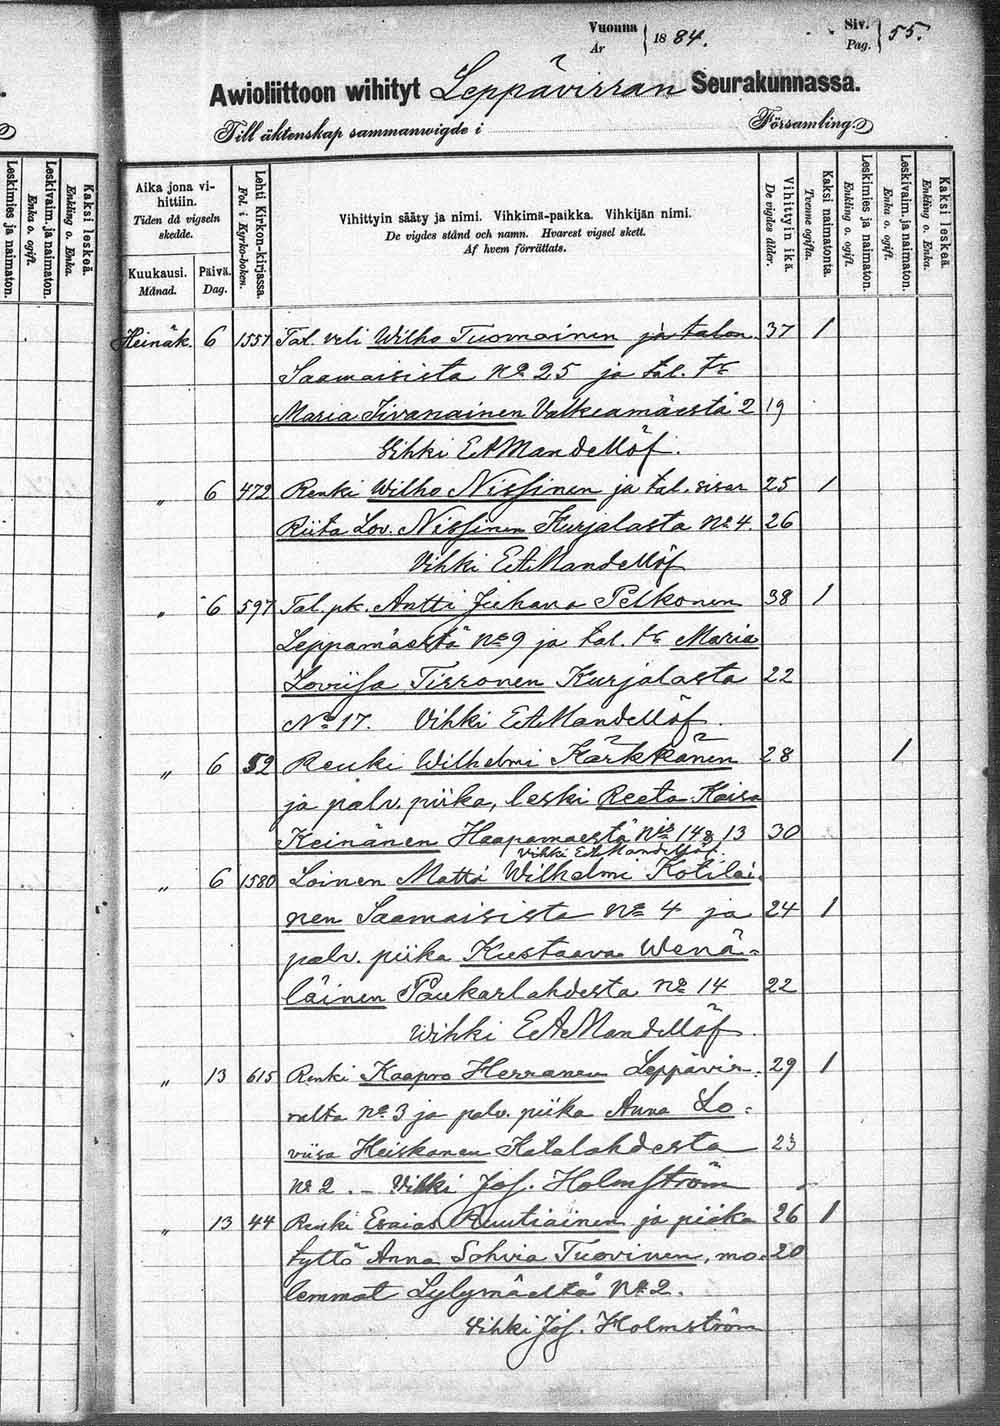 Vuonna
År
1884.
Siv.
Pag.
55.
Awioliittoon wihityt Leppävirran Seurakunnassa.
Till äktenskap sammanwigde i Församling.
Leskimies ja naimaton.
Leskivaim. ja naimaton.
Enka o. ogift.
Kaksi leskeä.
Enkling o. Enka.
Aika jona vihittiin.
Tiden då vigseln skedde.
Kuukausi.
Månad.
Päivä.
Dag.
Lehti Kirkon-kirjassa.
Fol. i Kyrko-boken.
Vihittyin sääty ja nimi. Vihkimä-paikka. Vihkijän nimi.
De vigdes stånd och namn. Hvarest vigsel skett.
Af hvem förrättats.
Vihittyin ikä.
De vigdes ålder.
Kaksi naimatonta.
Tvenne ogifta.
Leskimies ja naimaton.
Enkling o. ogift.
Leskivaim. ja naimaton.
Enka o. ogift.
Kaksi leskeä.
Enkling o. Enka.
Heinäk. 6 1557 Tal. veli Wilho Tuomainen ja talon 37 1
Saamaisista No 25 ja tal. tr
Maria Iivanainen Valkeamäestä 2 19
Vihki EAMandellöf.
„ 6 472 Renki Wilho Nissinen ja tal. sisar 25 1
Riita Lov. Nissinen Kurjalasta No 4 26
Vihki EAMandellöf
„ 6 597 Tal. pk. Antti Juhana Pelkonen 38 1
Leppämäestä No 9 ja tal. tr Maria
Loviisa Tirronen Kurjalasta 22
No 17. Vihki EAMandellöf.
„ 6 52 Renki Wilhelmi Kärkkänen 28 1
ja palv. piika, leski Reeta Kaisa
Keinänen Haapamaestä No 14 & 13 30
Vihki EAMandellöf.
„ 6 1580 Loinen Matti Wilhelmi Kotilai-
nen Saamaisista No 4 ja 24 1
palv. piika Kustaava Wenä-
läinen Paukarlahdesta No 14 22
Wihki EAMandellöf.
„ 13 615 Renki Kaapro Herranen Leppävir- 29 1
ralta No 3 ja palv. piika Anna Lo-
viisa Heiskanen Kotalahdesta 23
No 2. – Vihki Jos. Holmström
„ 13 44 Renki Esaias Ruutiainen ja piika 26 1
tyttö Anna Sohvia Tuovinen, mo- 20
lemmat Lylymäeltä No 2.
Vihki Jos. Holmström